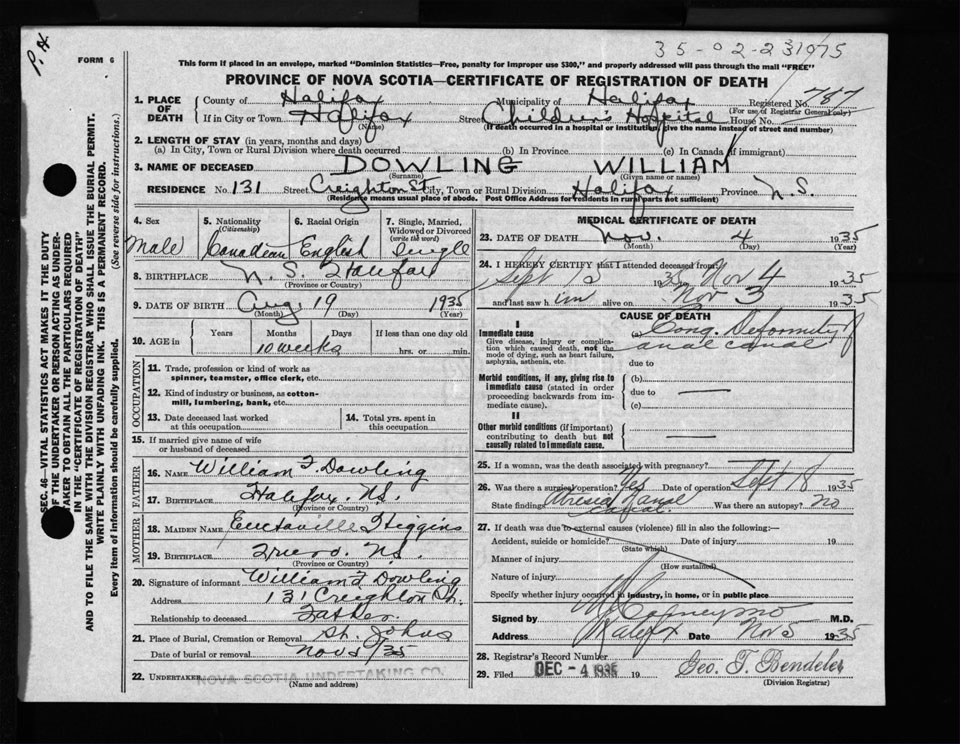 P.H
35-02-231975
FORM 6
This form if placed in an envelope, marked "Dominion Statistics—Free, penalty for improper use $300," and properly addressed will pass through the mail "FREE"
PROVINCE OF NOVA SCOTIA—CERTIFICATE OF REGISTRATION OF DEATH
SEC. 46—VITAL STATISTICS ACT MAKES IT THE DUTY
OF THE UNDERTAKER OR PERSON ACTING AS UNDERTAKER TO OBTAIN ALL THE PARTICULARS REQUIRED
IN THE "CERTIFICATE OF REGISTRATION OF DEATH"
AND TO FILE THE SAME WITH THE DIVISION REGISTRAR WHO SHALL ISSUE THE BURIAL PERMIT.
WRITE PLAINLY WITH UNFADING INK. THIS IS A PERMANENT RECORD.
Every item of information should be carefully supplied. (See reverse side for instructions.)
1. PLACE OF DEATH County of Halifax Municipality of Halifax Registered No. 787
(For use of Registrar General only)
If in City or Town Halifax Street Children's Hospital House No.
(Name) (If death occurred in a hospital or institution, give the name instead of street and number)
2. LENGTH OF STAY (in years, months and days)
(a) In City, Town or Rural Division where death occurred (b) In Province (c) In Canada (if immigrant)
3. NAME OF DECEASED DOWLING WILLIAM
(Surname) (Given name or names)
RESIDENCE No. 131 Street Creighton St City, Town or Rural Division Halifax Province N.S.
(Residence means usual place of abode. Post Office Address for residents in rural parts not sufficient)
4. Sex Male
5. Nationality (Citizenship) Canadian
6. Racial Origin English
7. Single, Married, Widowed or Divorced (write the word) Single
8. BIRTHPLACE N.S. Halifax
(Province or Country)
9. DATE OF BIRTH Aug 19 1935
(Month) (Day) (Year)
10. AGE in Years Months Days If less than one day old
10 weeks hrs. or min.
OCCUPATION
11. Trade, profession or kind of work as spinner, teamster, office clerk, etc.
12. Kind of industry or business, as cotton-mill, lumbering, bank, etc.
13. Date deceased last worked at this occupation
14. Total yrs. spent in this occupation
15. If married give name of wife or husband of deceased
FATHER
16. NAME William F. Dowling
17. BIRTHPLACE Halifax. N.S.
(Province or Country)
MOTHER
18. MAIDEN NAME Higgins
19. BIRTHPLACE Truro. N.S.
(Province or Country)
20. Signature of informant William F Dowling
Address 131 Creighton St.
Relationship to deceased Father
21. Place of Burial, Cremation or Removal St. Johns
Date of burial or removal Nov 5/35
22. UNDERTAKER NOVA SCOTIA UNDERTAKING CO.
(Name and address)
MEDICAL CERTIFICATE OF DEATH
23. DATE OF DEATH Nov. 4 1935
(Month) (Day) (Year)
24. I HEREBY CERTIFY that I attended deceased from
Sept 1935 Nov 4 1935
and last saw him alive on Nov 3 1935
CAUSE OF DEATH
I
Immediate cause
Give disease, injury or complication which caused death, not the mode of dying, such as heart failure, asphyxia, asthenia, etc.
(a) Cong. Deformity of
anal canal
due to
Morbid conditions, if any, giving rise to immediate cause (stated in order proceeding backwards from immediate cause).
(b)
due to
(c)
II
Other morbid conditions (if important) contributing to death but not causally related to immediate cause.
25. If a woman, was the death associated with pregnancy?
26. Was there a surgical operation? Yes Date of operation Sept 18 1935
State findings Atresia anal canal Was there an autopsy? No
27. If death was due to external causes (violence) fill in also the following:—
Accident, suicide or homicide? Date of injury 19
(State which)
Manner of injury
(How sustained)
Nature of injury
Specify whether injury occurred in industry, in home, or in public place
Signed by M.D.
Address Halifax Date Nov 5 1935
28. Registrar's Record Number
29. Filed DEC - 4 1935 19 Geo. T. Bendeler
(Division Registrar)